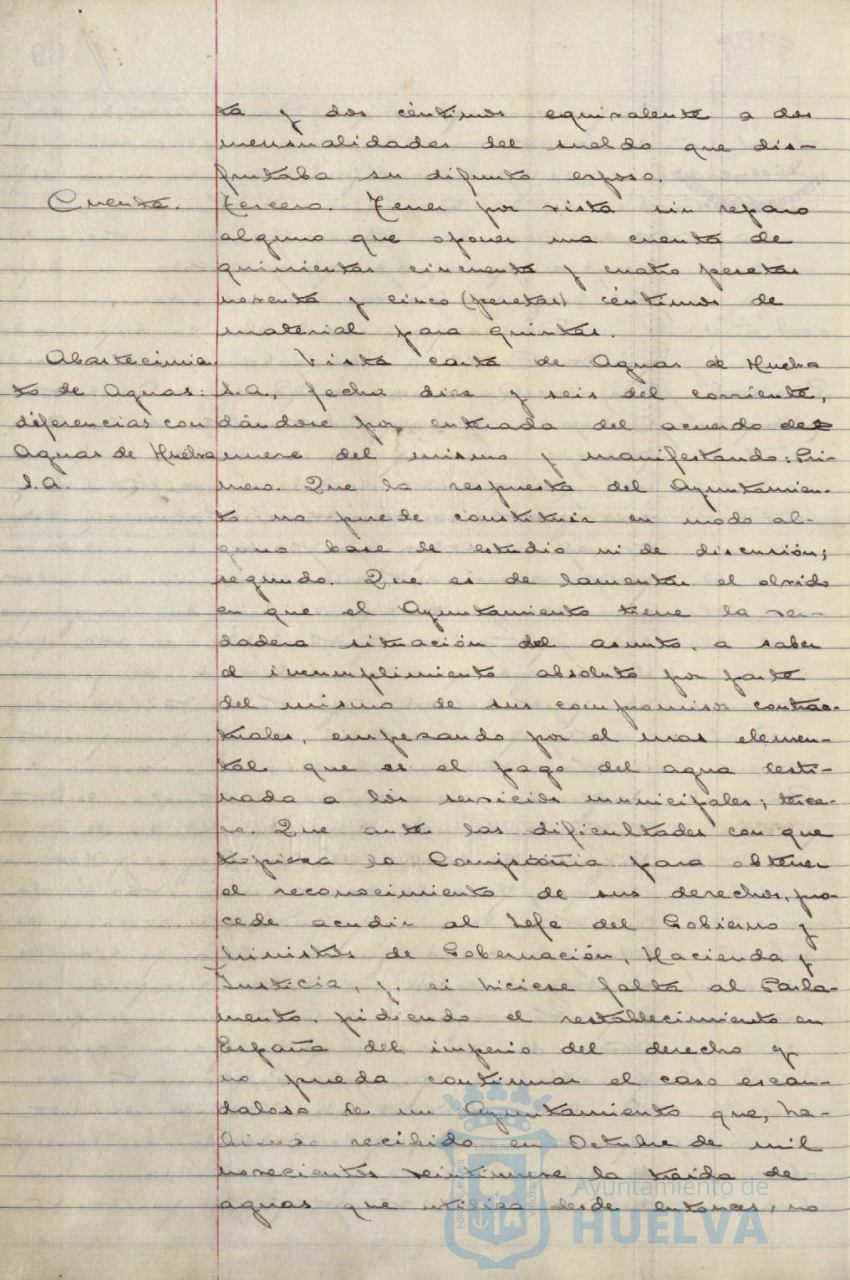 ta y dos céntimos equivalente a dos
mensualidades del sueldo que dis-
frutaba su difunto esposo.
Cuenta.
Tercero. Tener por vista sin reparo
alguno que oponer una cuenta de
quinientas cincuenta y cuatro pesetas
noventa y cinco (pesetas) céntimos de
material para quintas.
Abastecimien
to de Aguas:
diferencias con
Aguas de Huelva
S.A.
Vista carta de Aguas de Huelva
S.A, fecha diez y seis del corriente,
dándose por entrada del acuerdo de
nueve del mismo y manifestando: Pri-
mero. Que la respuesta del Ayuntamien-
to no puede constituir en modo al-
guno base de estudio ni de discusión;
segundo. Que es de lamentar el olvido
en que el Ayuntamiento tiene la ver-
dadera situación del asunto, a saber
el incumplimiento absoluto por parte
del mismo de sus compromisos contrac-
tuales, empezando por el mas elemen-
tal que es el pago del agua desti-
nada a los servicios municipales; terce-
ro. Que ante las dificultades con que
tropieza la Compañia para obtener
el reconocimiento de sus derechos, pro-
cede acudir al Jefe del Gobierno y
Ministros de Gobernación, Hacienda y
Justicia, y, si hiciese falta al Parla-
mento, pidiendo el restablecimiento en
España del imperio del derecho y
no pueda continuar el caso escan-
daloso de un Ayuntamiento que, ha-
biendo recibido en Octubre de mil
novecientos veintinueve la traida de
aguas que utiliza desde entonces, no
Ayuntamiento de
HUELVA